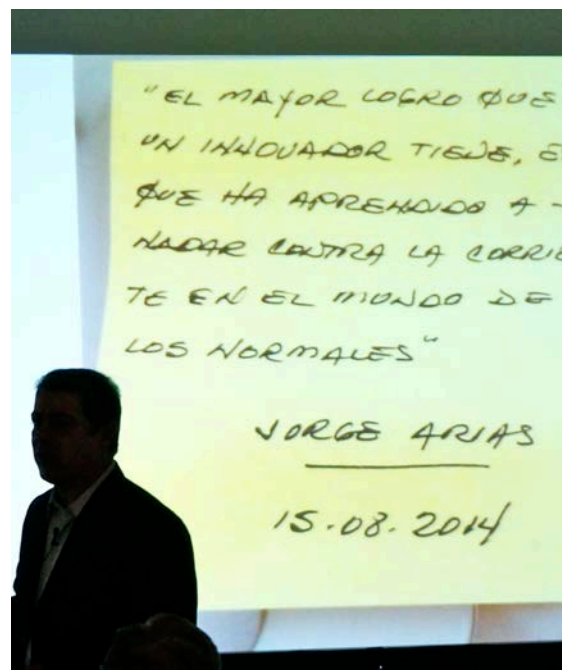 "EL MAYOR LOGRO QUE
UN INNOVADOR TIENE, E
QUE HA APRENDIDO A -
NADAR CONTRA LA CORRIE
TE EN EL MUNDO DE
LOS NORMALES"
JORGE ARIAS
15.08.2014